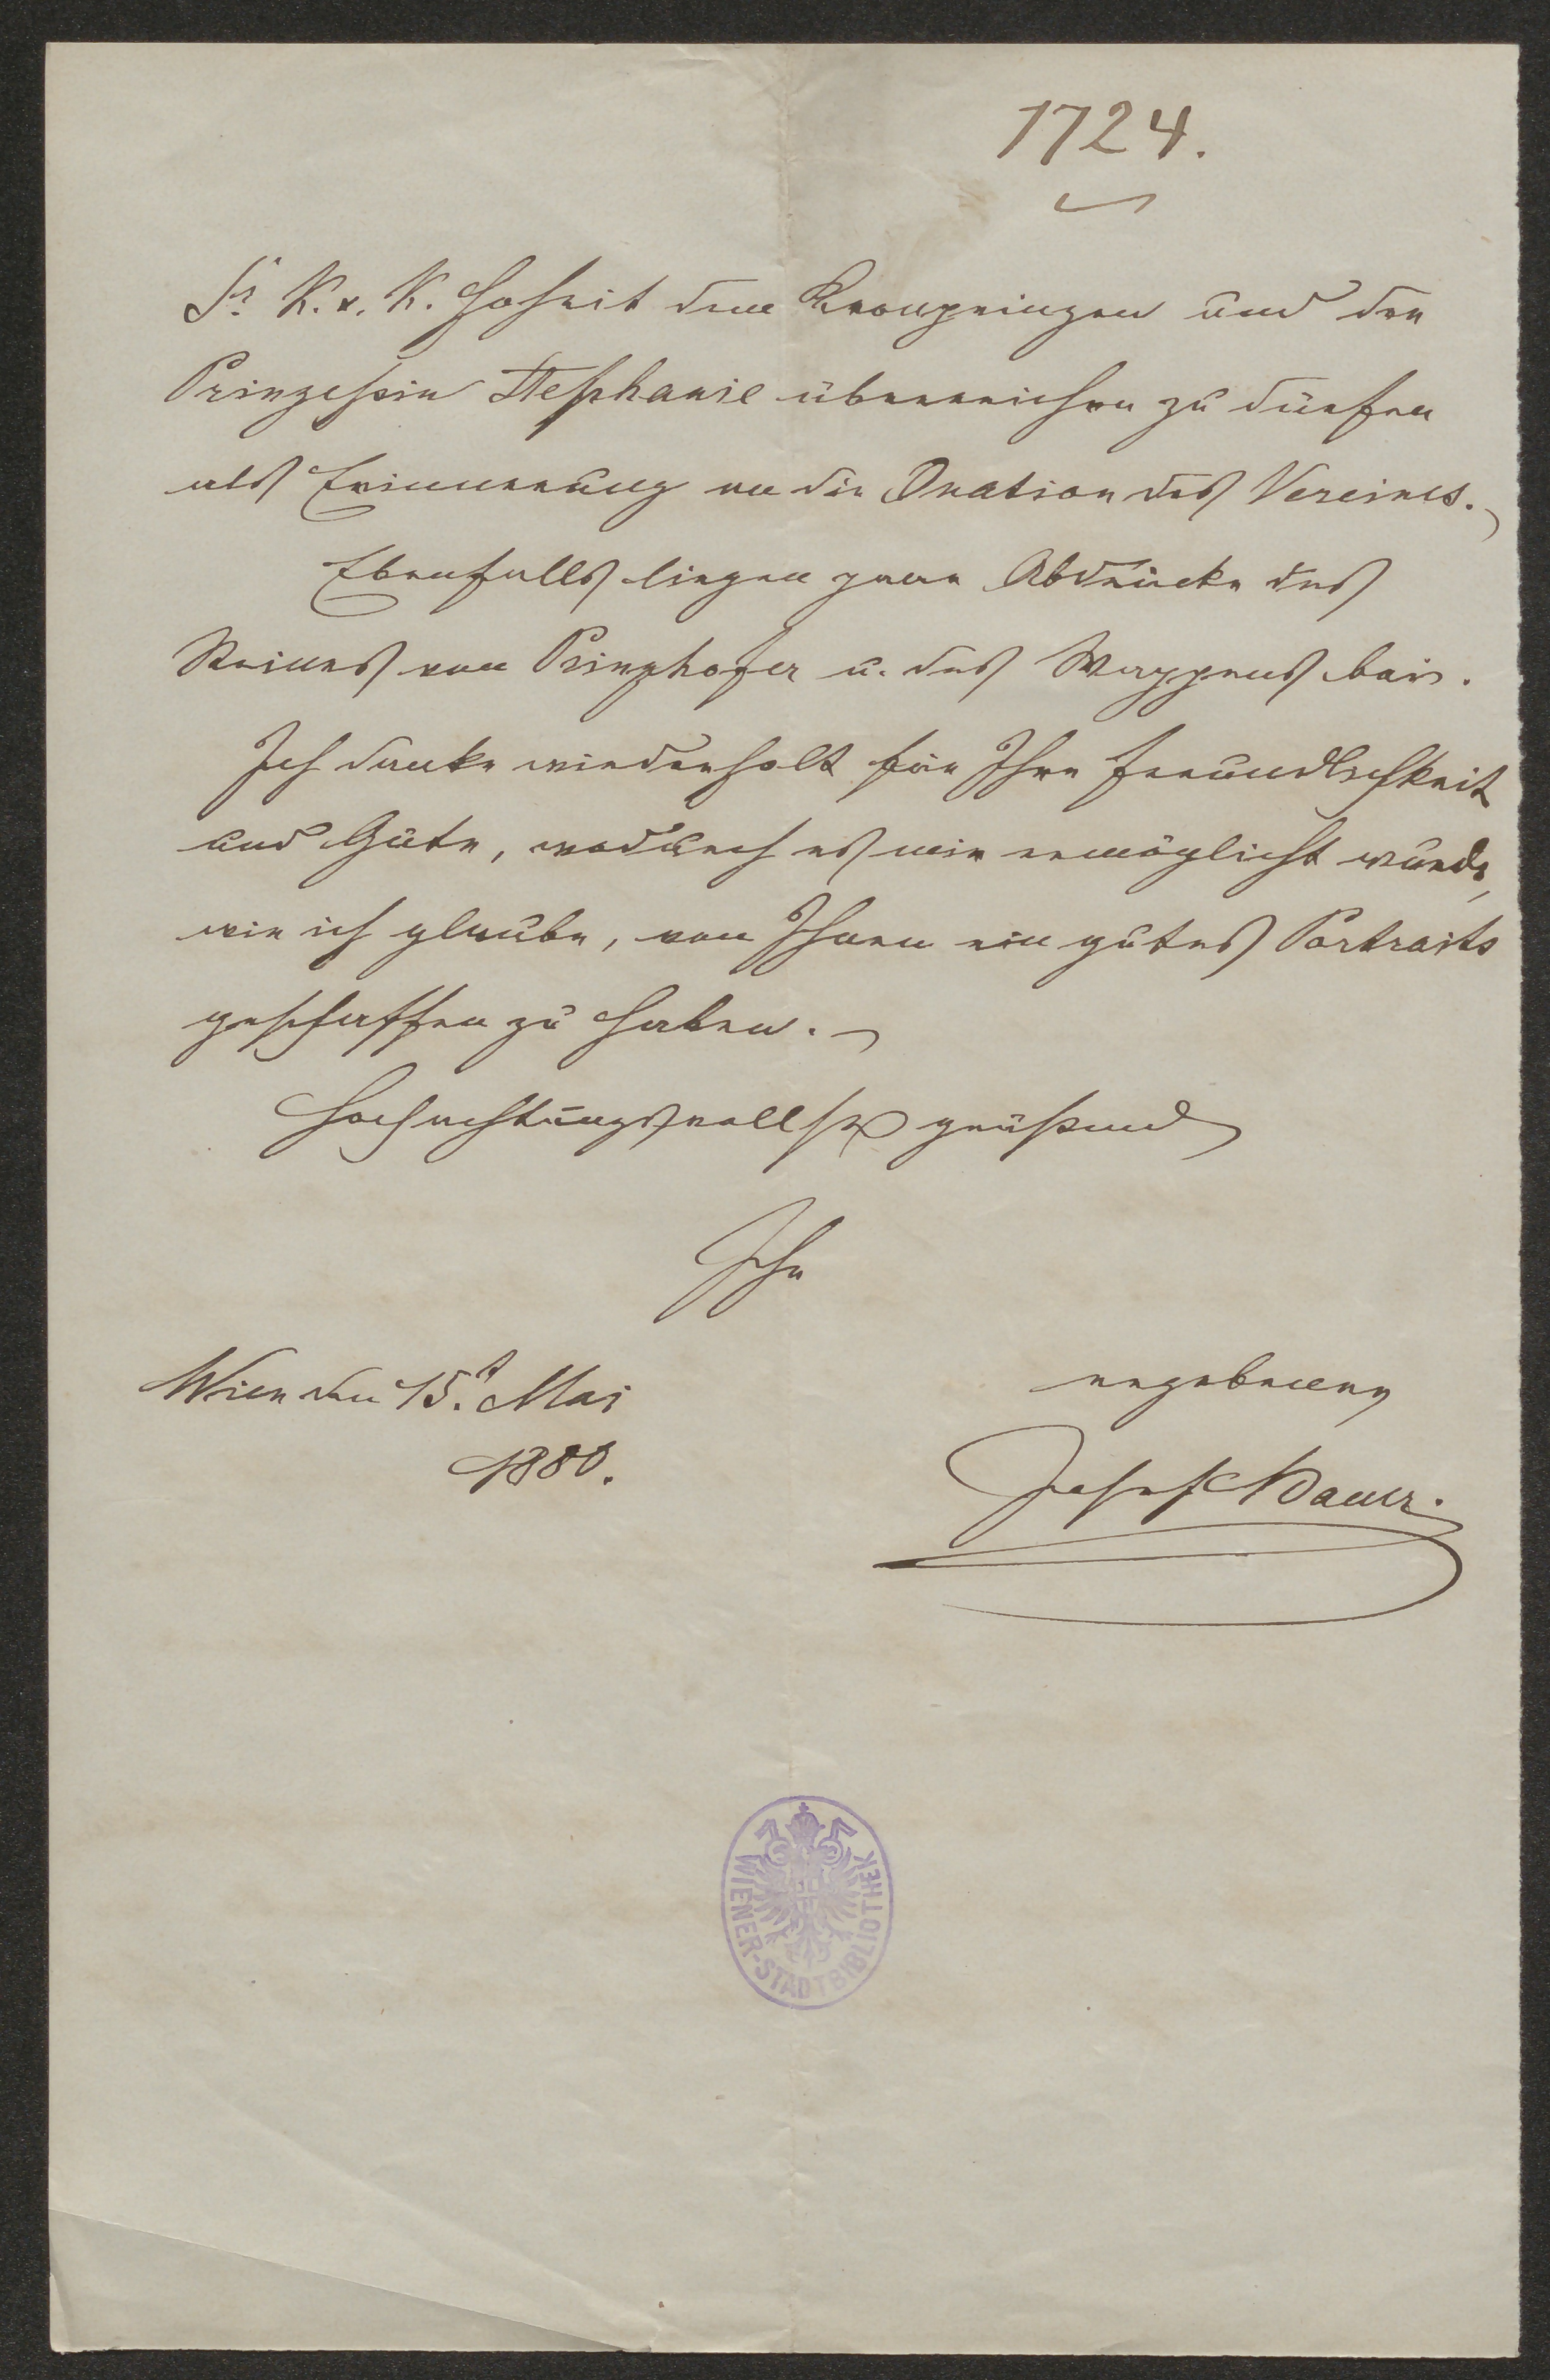 1724.
Sr K. u. K. Hoheit dem Kronprinzen und der
Prinzessin Stephanie überreichen zu dürfen
als Erinnerung an die Ovation des Vereines.
Ebenfalls liegen zwei Abdrücke des
von u. des Wappens bei.
Ich danke wiederholt für Ihre Freundlichkeit
und Güte, wodurch es mir ermöglicht wurde,
wie ich glaube, von Ihnen ein gutes Portraits
geschaffen zu haben.
Hochachtungsvollst grüßend
Ihr
Wien den 15t. Mai
1880.
ergebener
Josef
WIENER-STADTBIBLIOTHEK